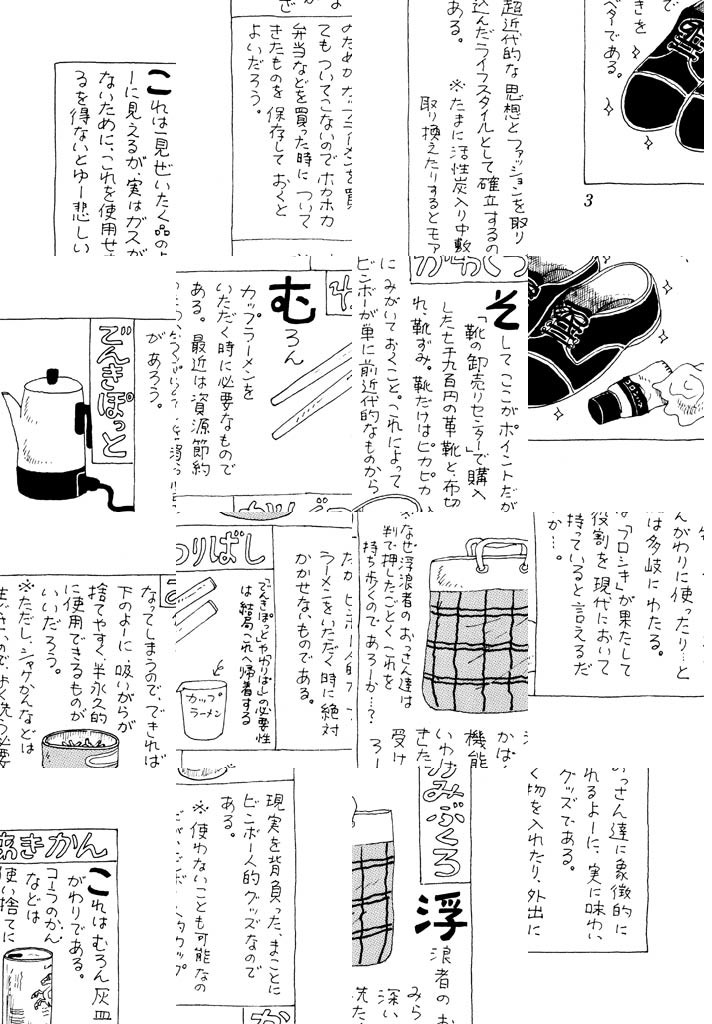 これは一見ぜいたく品のよ
ーに見えるが、実はガスが
ないために、これを使用せ
るを得ないとゆー悲しい
てもついてこないのでホカホカ
弁当などを買った時について
きたものを保存しておくと
よいだろう。
超近代的な思想とファッションを取り
込んだライフスタイルとして確立するの
ある。
※たまに活性炭入り中敷
取り換えたりするとモア
で
きを
ベターである。
3
があろう。
でんきぽっと
むろん
カップラーメンを
いただく時に必要なもので
ある。最近は資源節約
かわぐつ
そしてここがポイントだが
「靴の卸売りセンター」で購入
した七千九百円の革靴と、布切
れ、靴ずみ。靴だけはピカピカ
にみがいておくこと。これによって
ビンボーが単に前近代的なものから
コロンブス
なってしまうので、できれば
下のよーに吸いがらが
捨てやすく、半永久的
に使用できるものが
いいだろう。
※ただし、シャケかんなどは
わりばし
ラーメンをいただく時に絶対
かかせないものである。
「でんきぽっと」や「わりばし」の必要性
は結局これへ帰着する
カップ
ラーメン
※なぜ浮浪者のおっさん達は
判で押したごとくこれを
持ち歩くのであろーか…?
かは
機能
いわ
きた
ろー
受け
んがわりに使ったり…と
は多岐にわたる。
「フロシキ」が果たして
役割を現代において
持っていると言えるだ
か…。
あきかん
これはむろん灰皿
がわりである。
コーラのかん
などは
使い捨てに
現実を背負った、まことに
ビンボー人的グッズなので
ある。
※使わないことも可能なの
かみぶくろ
浮浪者のお
みら
深い
洗た
おっさん達に象徴的に
れるよーに、実に味わい
グッズである。
く物を入れたり、外出に